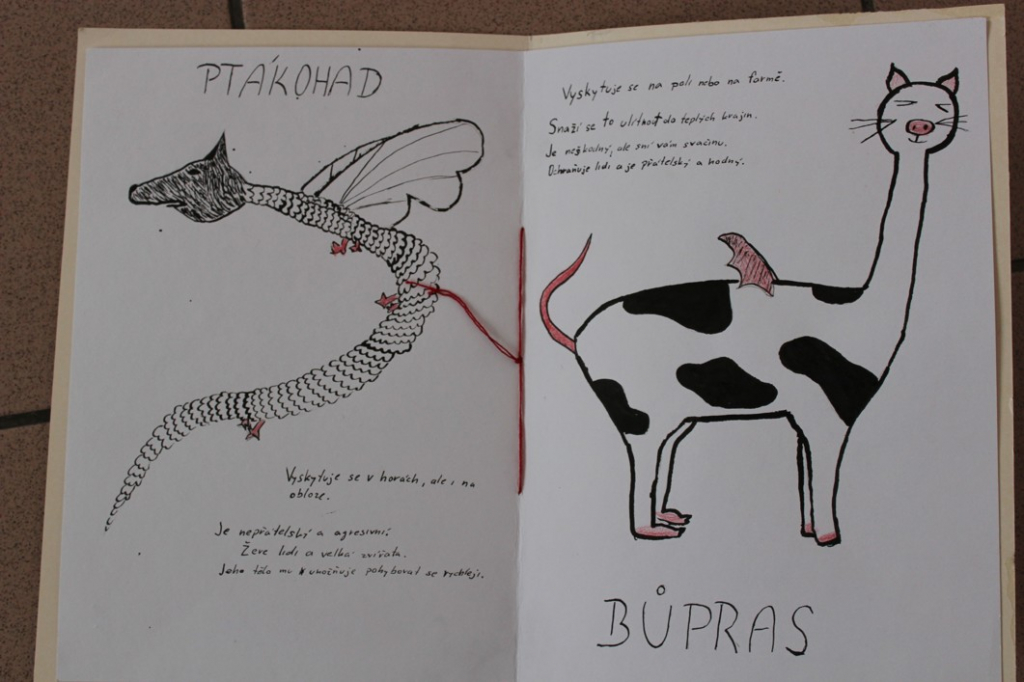 PTÁKOHAD
Vyskytuje se v horách, ale i na
obloze.
Je nepřátelský a agresivní.
Žere lidi a velká zvířata.
Jeho tělo mu umožňuje pohybovat se rychleji.
Vyskytuje se na poli nebo na farmě.
Snaží se to ulítnout do teplých krajin.
Je neškodný, ale sní vám svačinu.
Ochraňuje lidi a je přátelský a hodný.
BŮPRAS